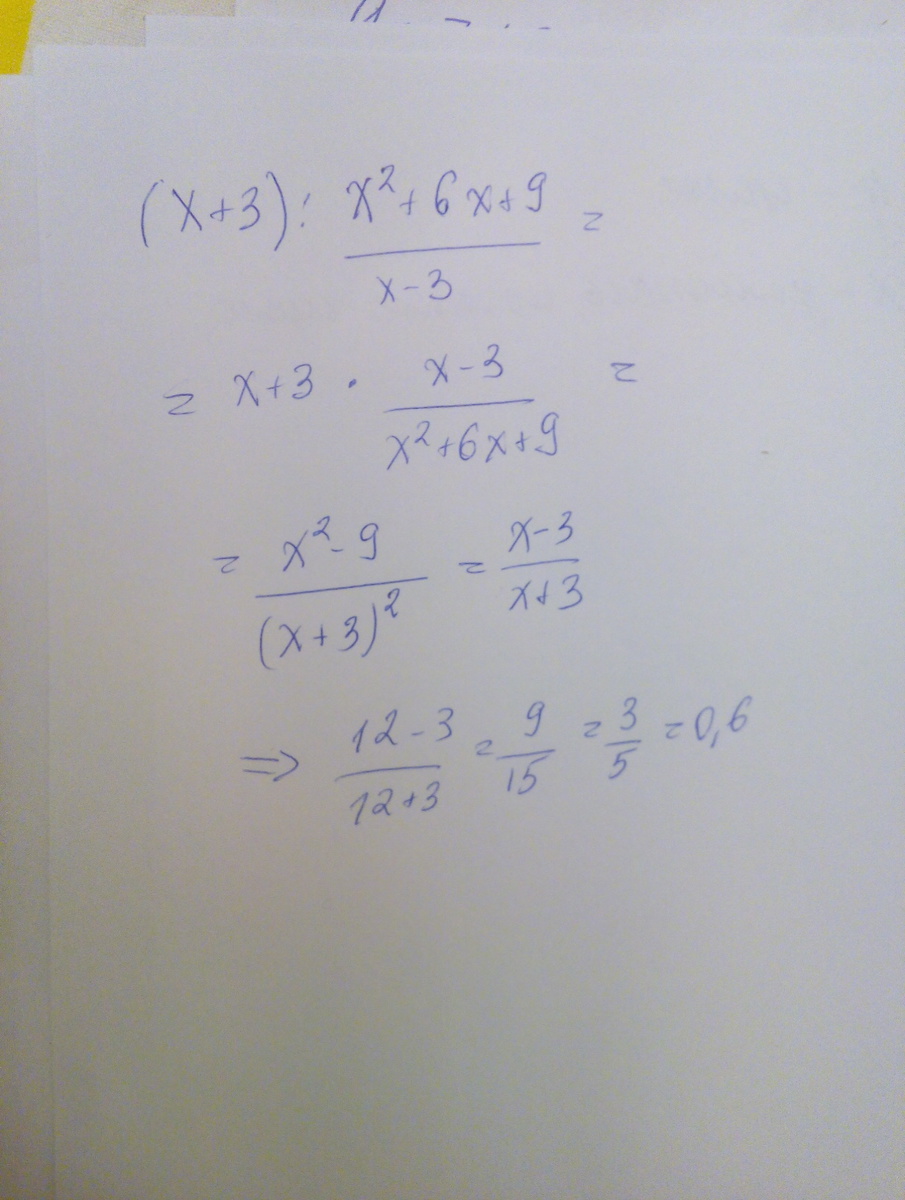 (x+3): \frac{x^2+6x+9}{x-3} =
= x+3 · \frac{x-3}{x^2+6x+9} =
= \frac{x^2-9}{(x+3)^2} = \frac{x-3}{x+3}
⇒ \frac{12-3}{12+3} = \frac{9}{15} = \frac{3}{5} = 0,6